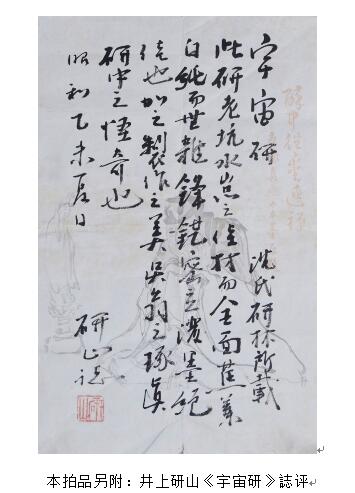 宇宙研 沈氏研林所載
此研老坑水岩之佳材而全面蕉葉
白純而無雜鋒鋩密立潑墨絶
佳也加之製作之美吳翁之琢真
研中之怪奇也
昭和乙未夏日
研山誌
本拍品另附：井上研山《宇宙研》誌评